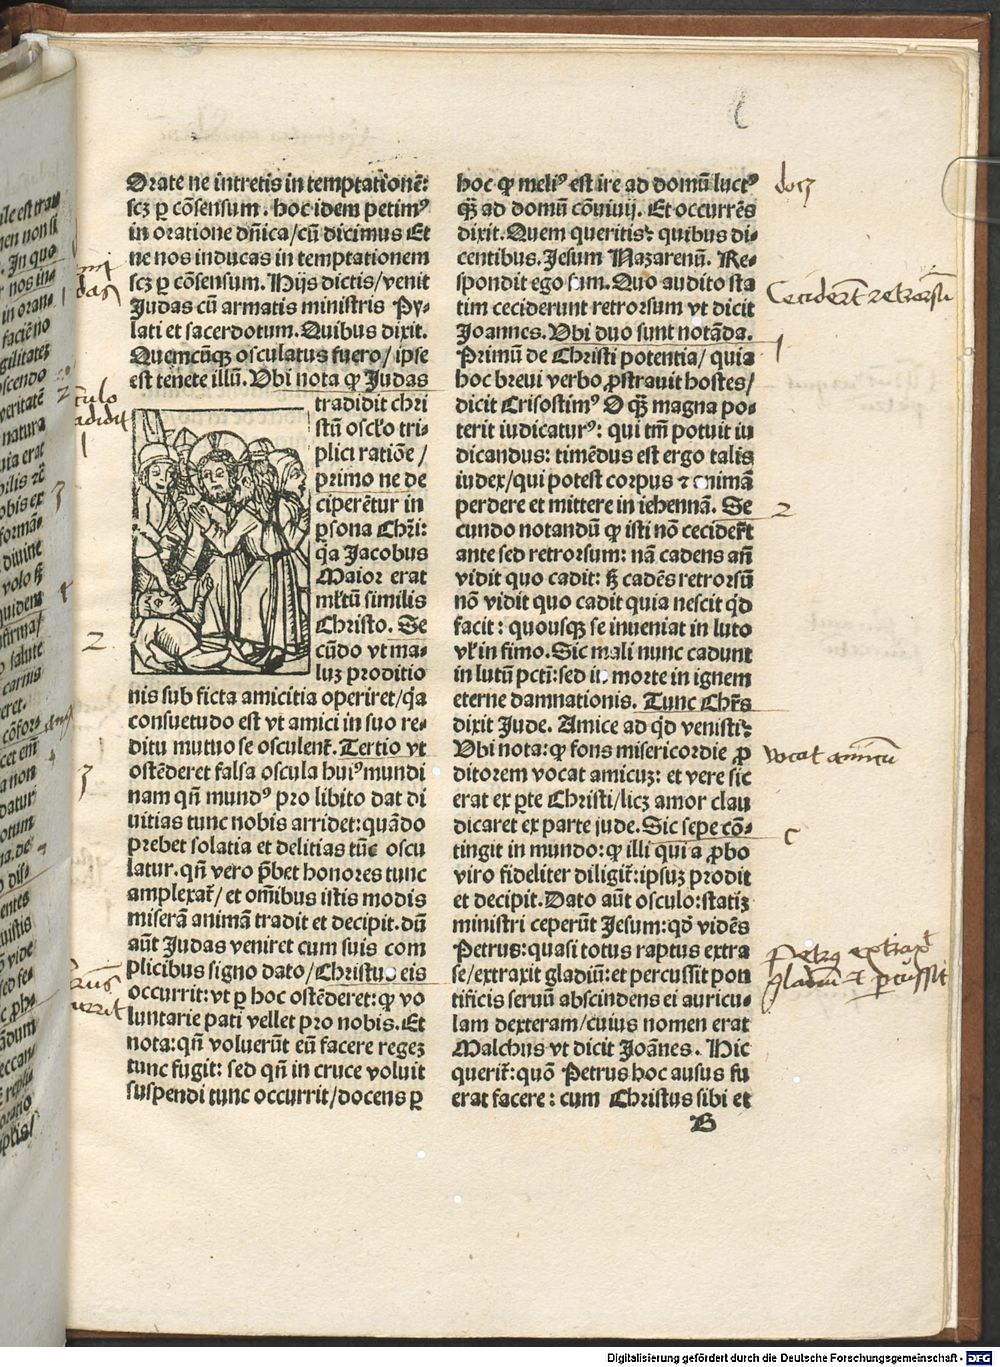 Orate ne intretis in temptationē:
scꝫ ꝑ cōsensum. hoc idem petimꝰ
in oratione dn̄ica/cū dicimus Et
ne nos inducas in temptationem
scꝫ ꝑ cōsensum. Hijs dictis/venit
Judas cū armatis ministris Py-
lati et sacerdotum. Quibus dixit.
Quemcūqꝫ osculatus fuero/ ipse
est tenete illū. Vbi nota ꝙ Judas
tradidit chri
stū oscło tri-
plici ratiōe /
primo ne de
ciperētur in
ꝑsona Chr̄i:
q̄a Jacobus
Maior erat
młtū similis
Christo. Se
cūdo vt ma-
luꝫ proditio
nis sub ficta amicitia operiret/q̄a
consuetudo est vt amici in suo re-
ditu mutuo se osculent̄. Tertio vt
ostēderet falsa oscula huiꝰ mundi
nam qn̄ mundꝰ pro libito dat di
uitias tunc nobis arridet: quādo
prebet solatia et delitias tūc oscu
latur. qn̄ vero p̄bet honores tunc
amplexat̄/ et om̄ibus istis modis
miserā animā tradit et decipit. dū
aūt Judas veniret cum suis com
plicibus signo dato/Christus eis
occurrit: vt ꝑ hoc ostēderet: ꝙ vo
luntarie pati vellet pro nobis. Et
nota: qn̄ voluerūt eū facere regeꝫ
tunc fugit: sed qn̄ in cruce voluit
suspendi tunc occurrit/docens ꝑ
hoc ꝙ meliꝰ est ire ad domū luctꝰ
q̄ꝫ ad domū cōuiuij. Et occurrēs
dixit. Quem queritis: quibus di-
centibus. Jesum Nazarenū. Re-
spondit ego sum. Quo audito sta
tim ceciderunt retrorsum vt dicit
Joannes. Vbi duo sunt notāda.
Primū de Christi potentia/ quia
hoc breui verbo ꝓstrauit hostes/
dicit Crisostimꝰ O q̄ꝫ magna po-
terit iudicaturꝰ: qui tm̄ potuit iu
dicandus: timēdus est ergo talis
iudex/qui potest corpus ⁊ animā
perdere et mittere in iehennā. Se
cundo notandū ꝙ isti nō cecider̄t
ante sed retrorsum: nā cadens an̄
vidit quo cadit: sꝫ cadēs retrorsū
nō vidit quo cadit quia nescit qd̄
facit: quousqꝫ se inueniat in luto
vł in fimo. Sic mali nunc cadunt
in lutū pctī: sed in morte in ignem
eterne damnationis. Tunc Chr̄s
dixit Jude. Amice ad qd̄ venisti:
Vbi nota: ꝙ fons misericordie ꝓ
ditorem vocat amicuꝫ: et vere sic
erat ex ꝑte Christi/licꝫ amor clau
dicaret ex parte jude. Sic sepe cō-
tingit in mundo: ꝙ illi qui a ꝓbo
viro fideliter diligit̄: ipsuꝫ prodit
et decipit. Dato aūt osculo: statiꝫ
ministri ceperūt Jesum: qd̄ vidēs
Petrus: quasi totus raptus extra
se/extraxit gladiū: et percussit pon
tificis seruū abscindens ei auricu-
lam dexteram/cuius nomen erat
Malchus vt dicit Joānes. Hic
querit̄: quō Petrus hoc ausus fu
erat facere: cum Christus sibi et
B
docꝫ
Cecider̄t retrorsū
1
2
vocat amicū
c
Petrꝰ extraxit
gladiū et percussit
1
2
3
Digitalisierung gefördert durch die Deutsche Forschungsgemeinschaft - DFG